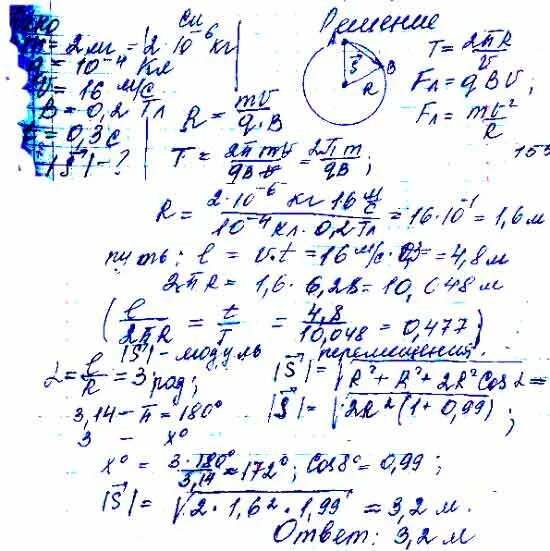 Си Решение
m = 2 мг = 2·10⁻⁶ кг
q = 10⁻⁴ Кл
v = 16 м/с
B = 0,2 Тл
t = 0,3 с
|S⃗| - ?
A B S⃗ R
T = 2πR/v
Fл = qBv;
Fл = mv²/R
R = mv/q·B
T = 2πmv/qBv = 2πm/qB;
153
R = 2·10⁻⁶ кг 16 м/с / 10⁻⁴ Кл·0,2 Тл = 16·10⁻¹ = 1,6 м
путь: l = v·t = 16 м/с·0,3 = 4,8 м
2πR = 1,6·6,28 = 10,048 м
(l/2πR = t/T = 4,8/10,048 = 0,477)
|S⃗| - модуль перемещения.
α = l/R = 3 рад; |S⃗| = √R² + R² + 2R² Cos α =
3,14 - π = 180° |S⃗| = √2R² (1 + 0,99);
3 - x°
x° = 3·180°/3,14 = 172°; Cos 8° = 0,99;
|S⃗| = √2·1,6²·1,99 = 3,2 м.
Ответ: 3,2 м